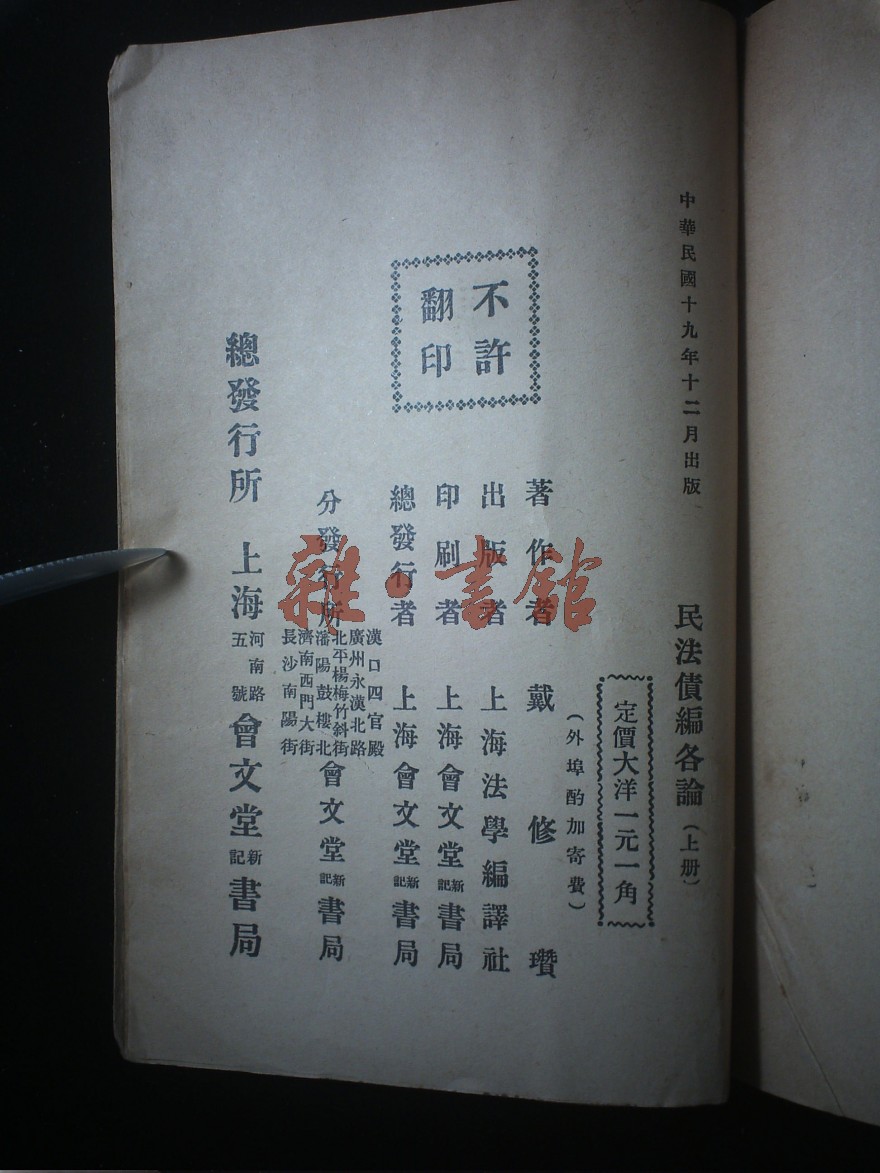 中華民國十九年十二月出版
民法債編各論（上册）
定價大洋一元一角
（外埠酌加寄費）
不許
翻印
著作者 戴修瓚
出版者 上海法學編譯社
印刷者 上海會文堂新記書局
總發行者 上海會文堂新記書局
漢口四官殿
廣州永漢北路
北平楊梅竹斜街
分發行所 會文堂新記書局
瀋陽鼓樓北
濟南西門大街
長沙南陽街
總發行所 上海河南路五號會文堂新記書局
雜·書館